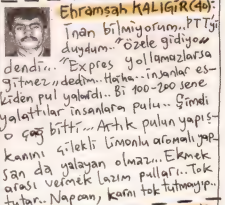 Ehramşah KALIGIR (40):
İnan bilmiyorum.. PTT'yi
duydum.. "Özele gidiyo"
dendi... "Expres yollamazlarsa
gitmez" dedim.. Haha.. insanlar es-
kiden pul yalardı.. Bi 100-200 sene
yalattılar insanlara pulu.. Şimdi
o çağ bitti... Artık pulun yapış-
kanını çilekli limonlu aromalı yap-
san da yalayan olmaz... Ekmek
arası vermek lazım pulları.. Tok
tutar.. Napcan, karnı tok tutmayıp..